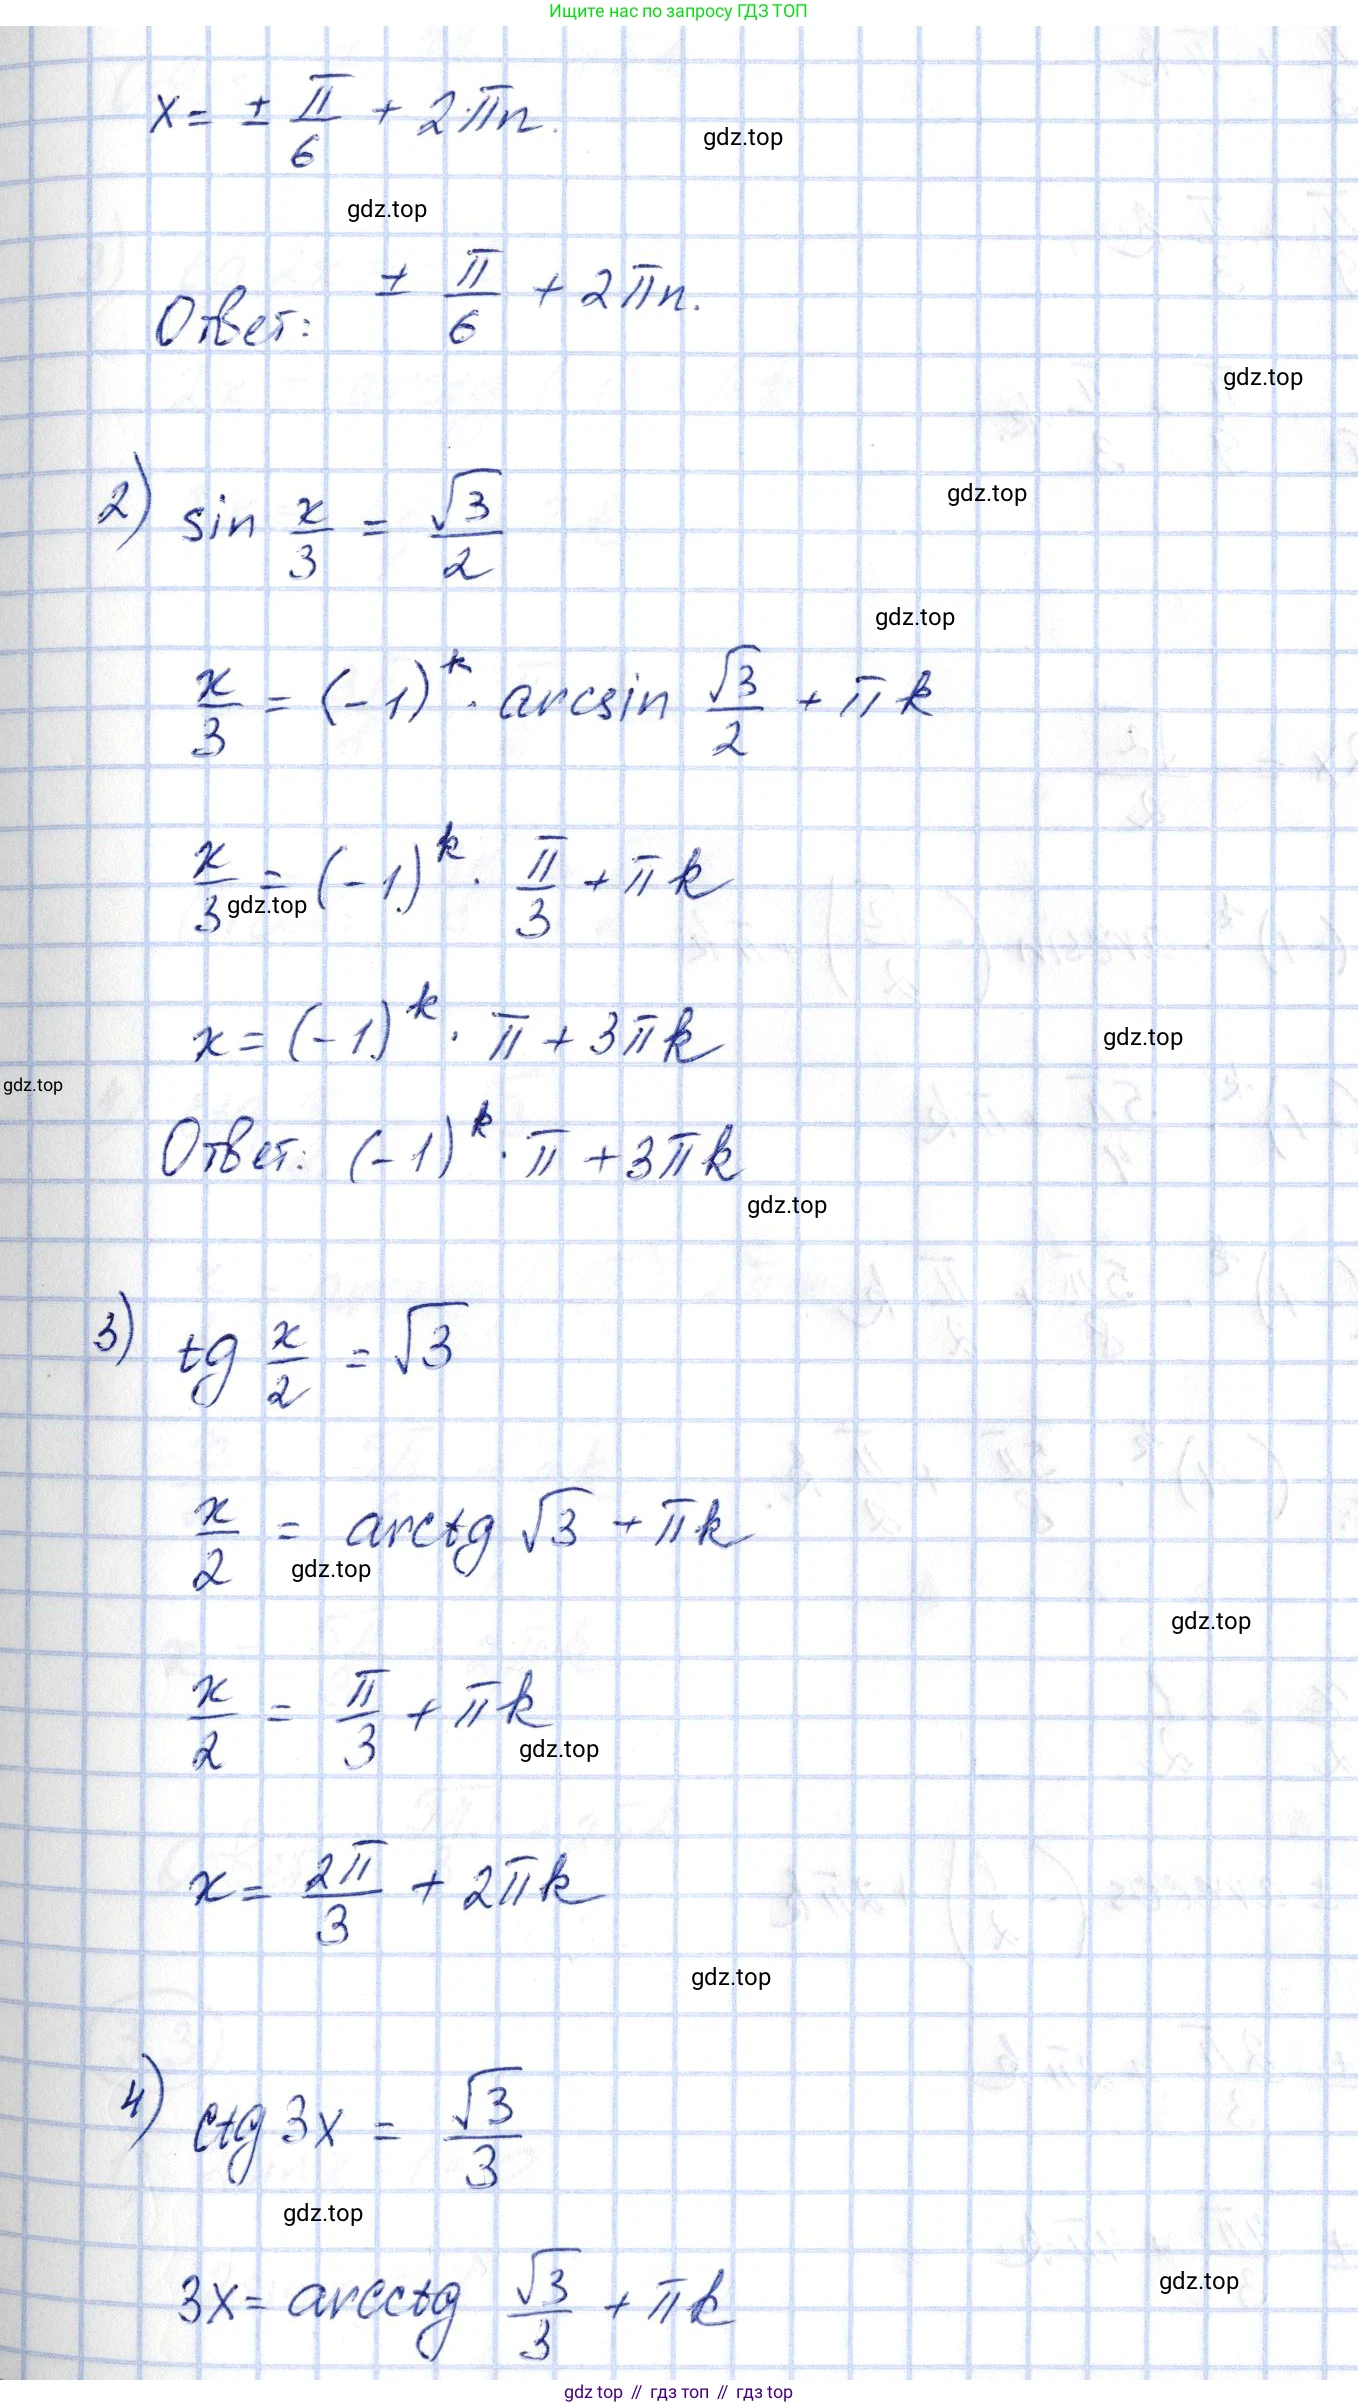 Ищите нас по запросу ГДЗ ТОП
x = ± π/6 + 2πn.
gdz.top
gdz.top
Ответ: ± π/6 + 2πn.
gdz.top
2) sin x/3 = √3/2
gdz.top
gdz.top
x/3 = (-1)^k · arcsin √3/2 + πk
x/3 = (-1)^k · π/3 + πk
gdz.top
x = (-1)^k · π + 3πk
gdz.top
gdz.top
Ответ: (-1)^k · π + 3πk
gdz.top
3) tg x/2 = √3
x/2 = arctg √3 + πk
gdz.top
gdz.top
x/2 = π/3 + πk
gdz.top
x = 2π/3 + 2πk
gdz.top
4) ctg 3x = √3/3
gdz.top
gdz.top
3x = arcctg √3/3 + πk
gdz top // гдз топ // gdz top